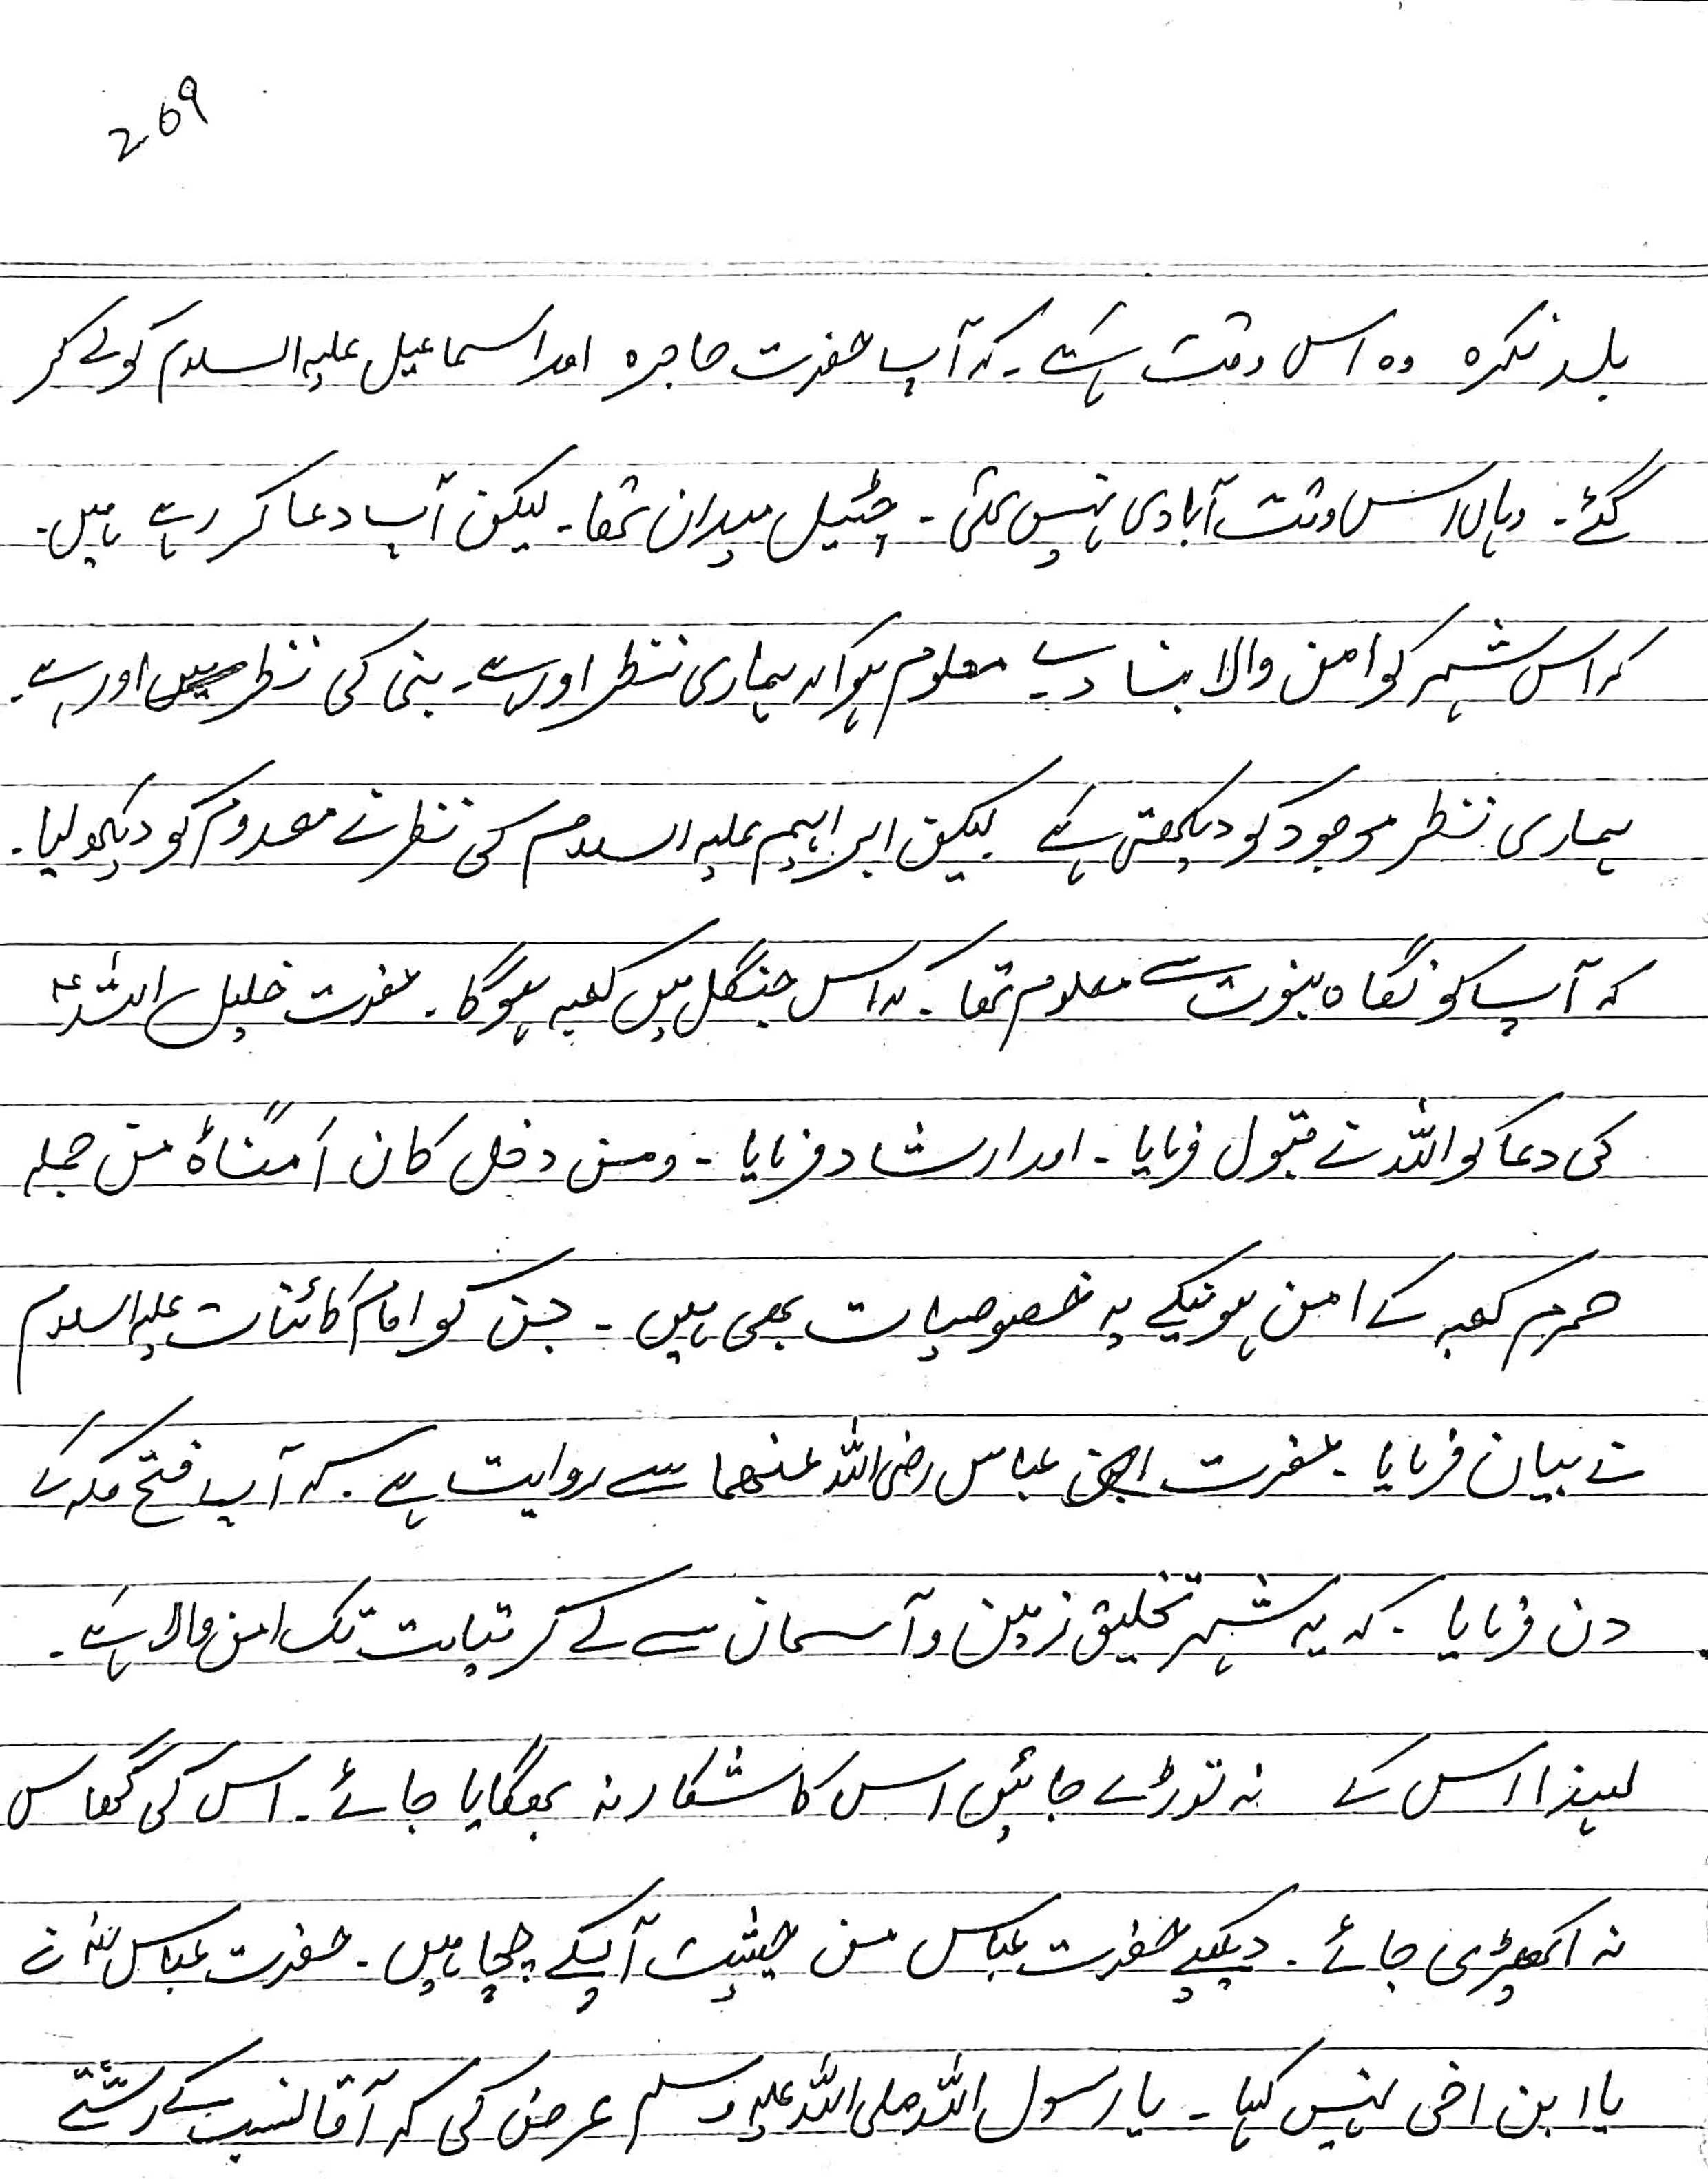 269
بلد نکرہ وہ اس وقت ہے ۔ کہ آپ حضرت حاجرہ اور اسماعیل علیہ السلام کو لے کر
گئے ۔ وہاں اس وقت آبادی نہیں تھی ۔ چٹیل میدان تھا ۔ لیکن آپ دعا کر رہے ہیں ۔
کہ اس شہر کو امن والا بنا دے معلوم ہوا کہ ہماری نظر اور ہے ۔ نبی کی نظر اور ہے ۔
ہماری نظر موجود کو دیکھتی ہے لیکن ابراہیم علیہ السلام کی نظر نے معدوم کو دیکھ لیا ۔
کہ آپ کو نگاہ نبوت سے معلوم تھا ۔ کہ اس جنگل میں کعبہ ہوگا ۔ حضرت خلیل اللہ ؑ
کی دعا کو اللہ نے قبول فرمایا ۔ اور ارشاد فرمایا ۔ ومن دخل کان اٰمناً من جملہ
حرم کعبہ کے امن ہونیکے یہ خصوصیات بھی ہیں ۔ جن کو امام کائنات علیہ السلام
نے بیان فرمایا ۔ حضرت ابن عباس رضی اللہ عنھما سے روایت ہے ۔ کہ آپ فتح مکہ کے
دن فرمایا ۔ کہ یہ شہر تخلیق زمین و آسمان سے لے کر قیامت تک امن والا ہے ۔
لہذا اس کے نہ توڑے جائیں اس کا شکار نہ بھگایا جائے ۔ اس کی گھاس
نہ اکھیڑی جائے ۔ دیکیے حضرت عباس من حیثیت آپکے چچا ہیں ۔ حضرت عباس رضؓ نے
یا ابن اخی نہیں کہا ۔ یا رسول اللہ صلی اللہ علیہ وسلم عرض کی کہ آقا نسب کے رشتے